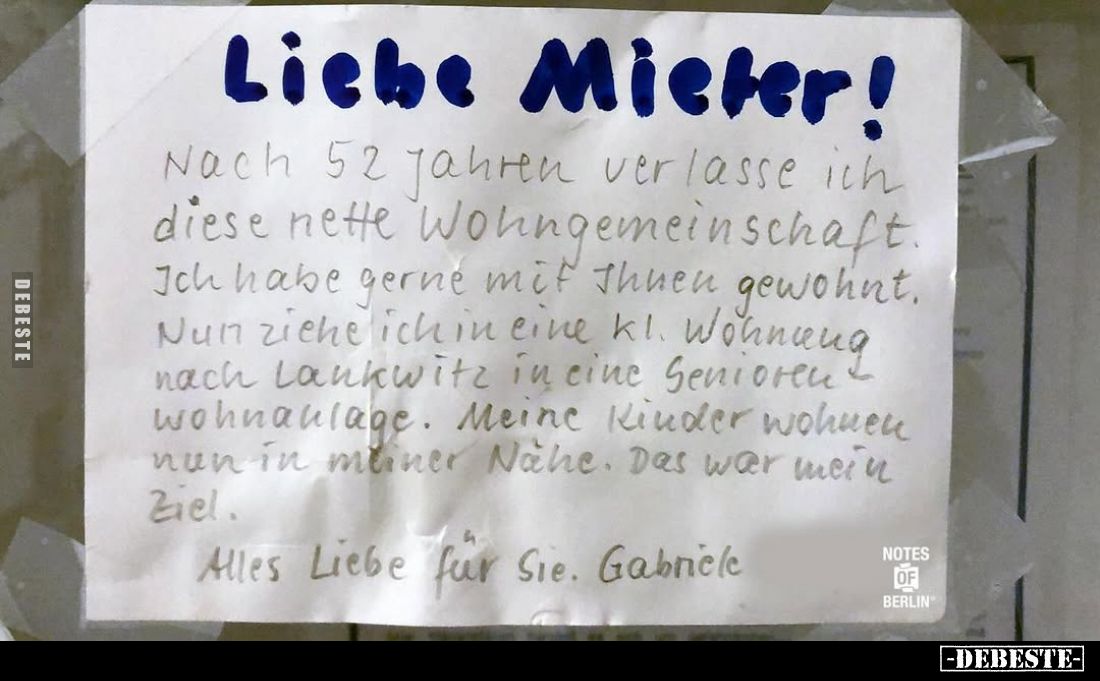 Liebe Mieter!
Nach 52 Jahren verlasse ich
diese nette Wohngemeinschaft.
Ich habe gerne mit Ihnen gewohnt.
Nun ziehe ich in eine kl. Wohnung
nach Lankwitz in eine Senioren-
wohnanlage. Meine Kinder wohnen
nun in meiner Nähe. Das war mein
Ziel.
Alles Liebe für Sie. Gabriele
NOTES
OF
BERLIN
DEBESTE
-DEBESTE-